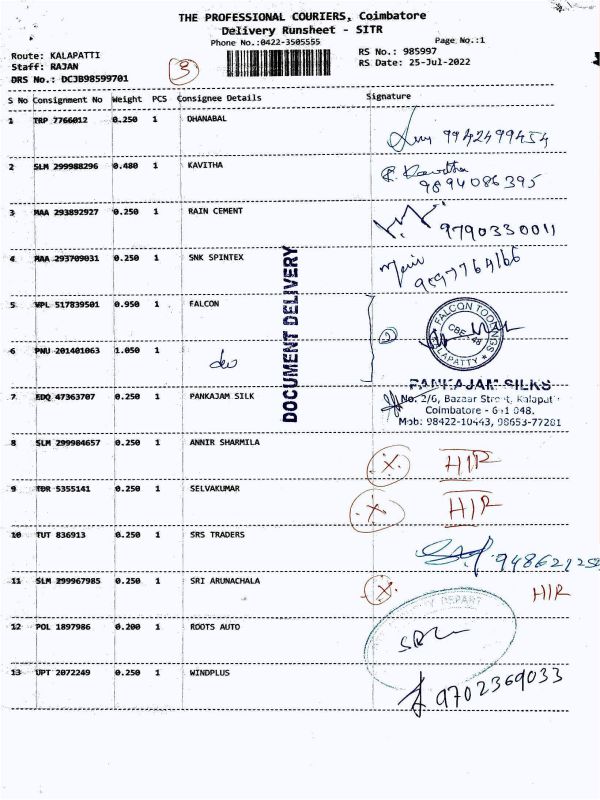 THE PROFESSIONAL COURIERS, Coimbatore
Delivery Runsheet - SITR
Phone No.:0422-3505555
Page No.:1
Route: KALAPATTI
RS No.: 985997
Staff: RAJAN
RS Date: 25-Jul-2022
DRS No.: DCJB98599701
3
S No Consignment No Weight PCS Consignee Details Signature
1 TRP 7766012 0.250 1 DHANABAL
9942499454
2 SLM 299988296 0.480 1 KAVITHA
K. Kavitha
9894086395
3 MAA 293892927 0.250 1 RAIN CEMENT
9790330011
4 MAA 293709031 0.250 1 SNK SPINTEX
DOCUMENT DELIVERY
5 WPL 517839501 0.950 1 FALCON
2
FALCON TOOLINGS
CBE - 48
KALAPATTY
6 PNU 201401063 1.050 1
do
7 EDQ 47363707 0.250 1 PANKAJAM SILK
PANKAJAM SILKS
No. 2/6, Bazaar Street, Kalapatti
Coimbatore - 641 048.
Mob: 98422-10443, 98653-77281
8 SLM 299984657 0.250 1 ANNIR SHARMILA
X HIR
9 TDR 5355141 0.250 1 SELVAKUMAR
X HIR
10 TUT 836913 0.250 1 SRS TRADERS
11 SLM 299967985 0.250 1 SRI ARUNACHALA
X HIR
12 POL 1897986 0.200 1 ROOTS AUTO
13 UPT 2072249 0.250 1 WINDPLUS
9702369033